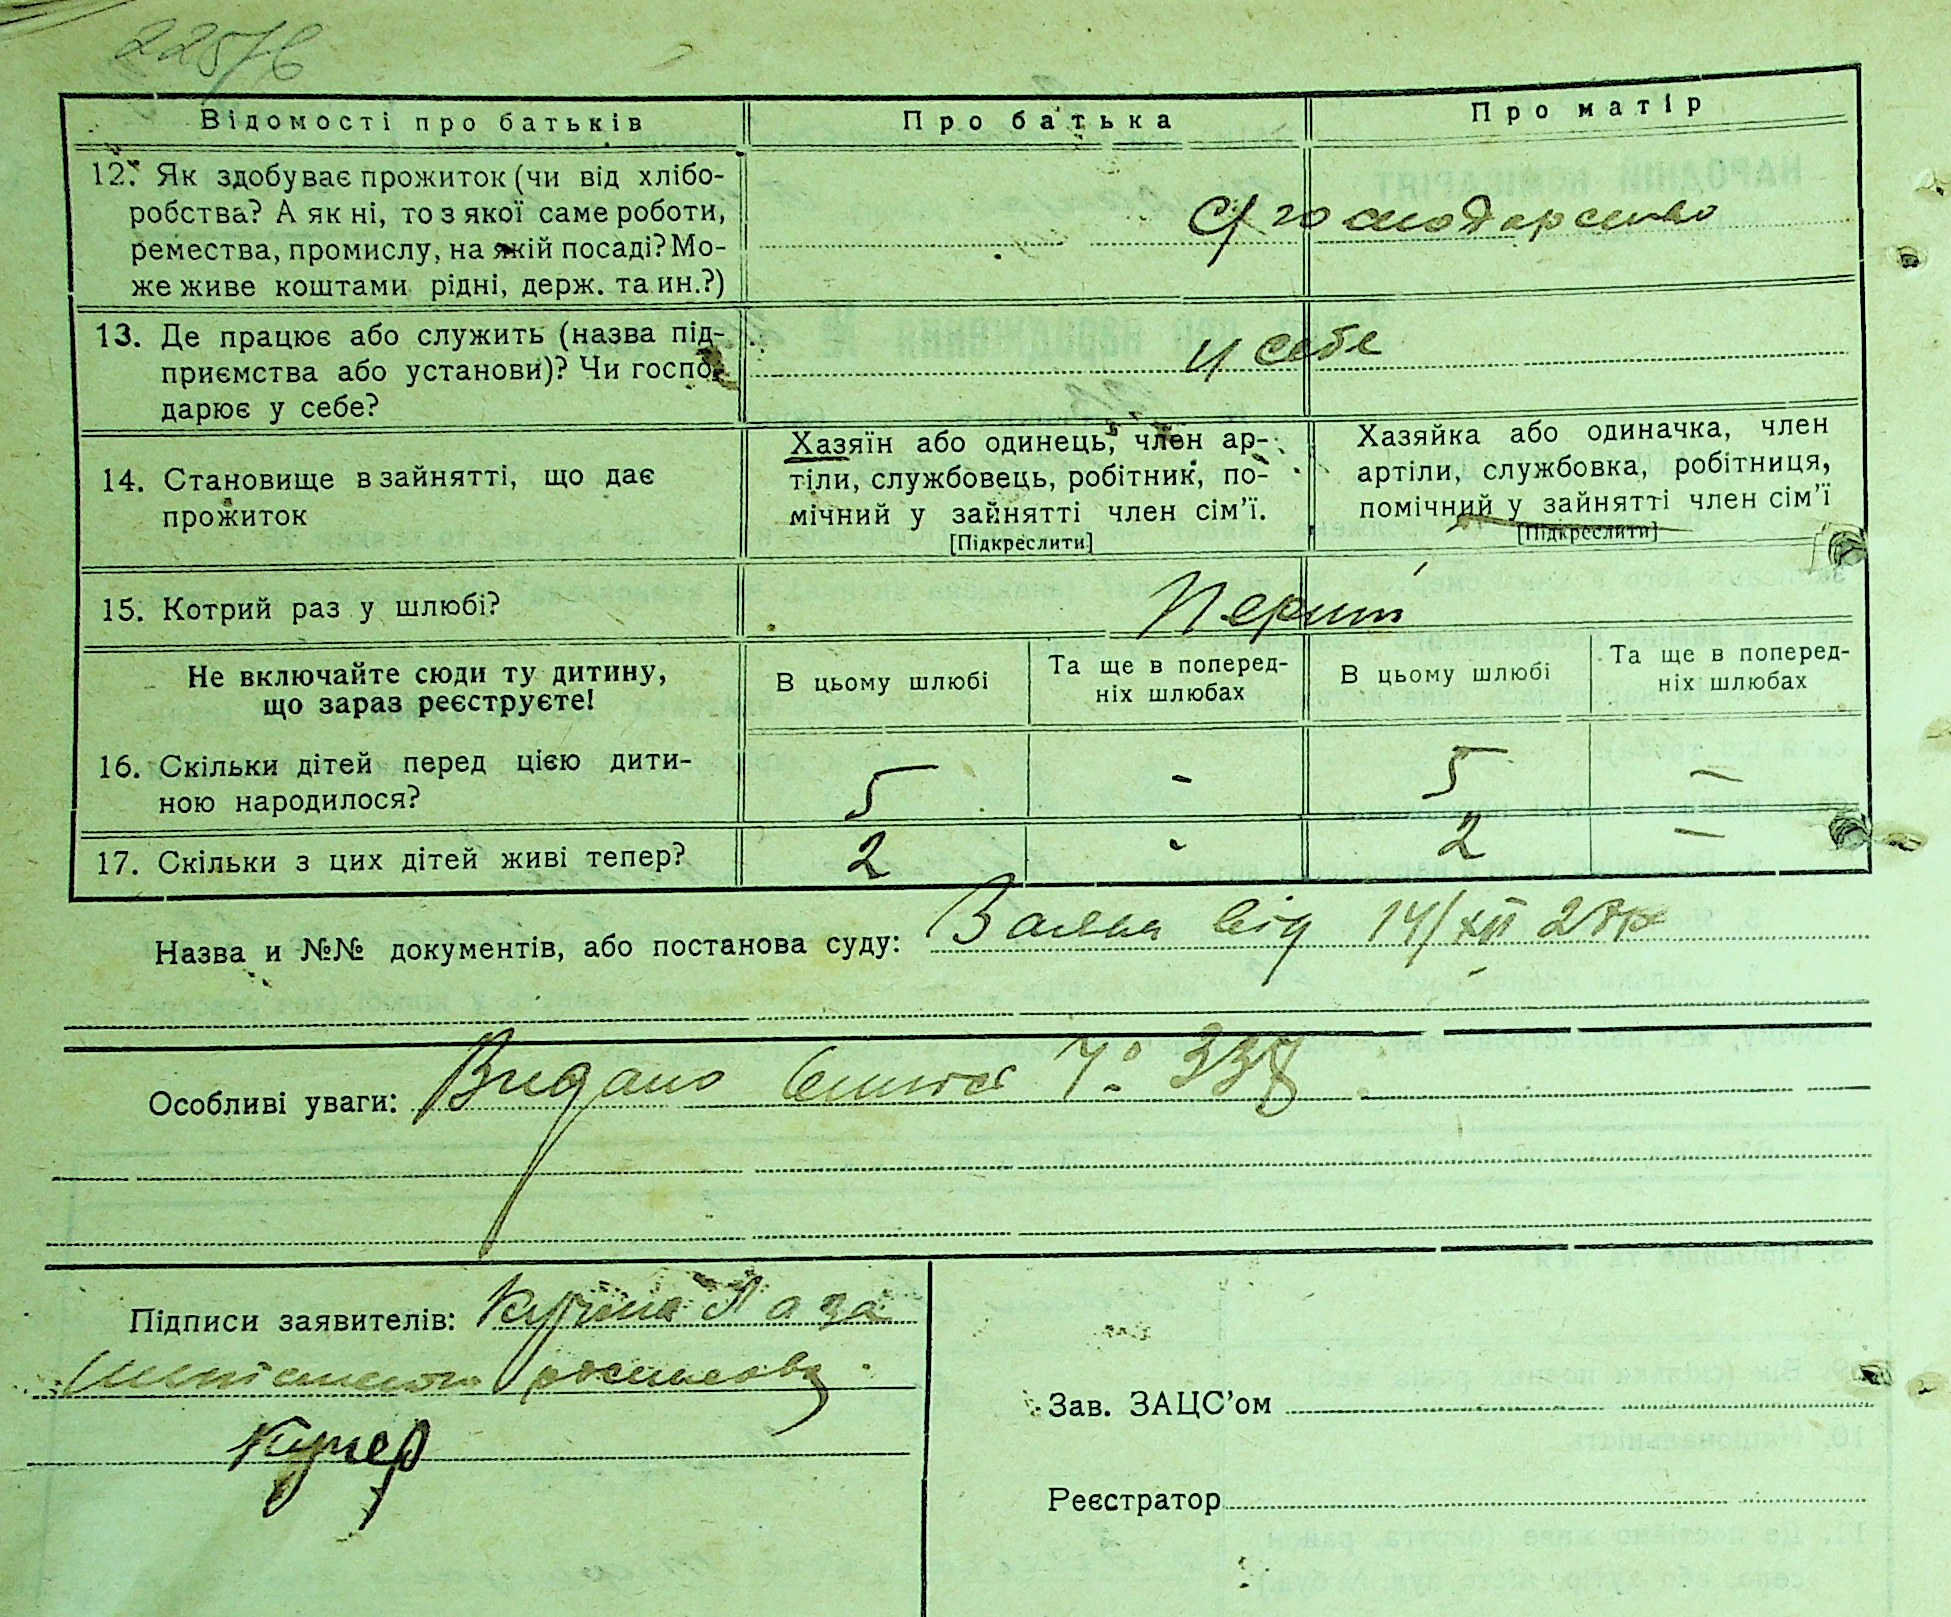 225/6
Відомості про батьків
Про батька
Про матір
12. Як здобуває прожиток (чи від хлібо-
робства? А як ні, то з якої саме роботи,
ремества, промислу, на якій посаді? Мо-
же живе коштами рідні, держ. та ин.?)
с/господарство
13. Де працює або служить (назва під-
приємства або установи)? Чи госпо-
дарює у себе?
у себе
14. Становище в зайнятті, що дає
прожиток
Хазяїн або одинець, член ар-
тіли, службовець, робітник, по-
мічний у зайнятті член сім'ї.
[Підкреслити]
Хазяйка або одиначка, член
артіли, службовка, робітниця,
помічний у зайнятті член сім'ї
[Підкреслити]
15. Котрий раз у шлюбі?
Перший
Не включайте сюди ту дитину,
що зараз реєструєте!
В цьому шлюбі
Та ще в поперед-
ніх шлюбах
В цьому шлюбі
Та ще в поперед-
ніх шлюбах
16. Скільки дітей перед цією дити-
ною народилося?
5 - 5 —
17. Скільки з цих дітей живі тепер?
2 - 2 —
Назва и №№ документів, або постанова суду: Заява від 14/XII
Особливі уваги: Видано 338
Підписи заявителів:
Кучер
Зав. ЗАЦС'ом
Реєстратор